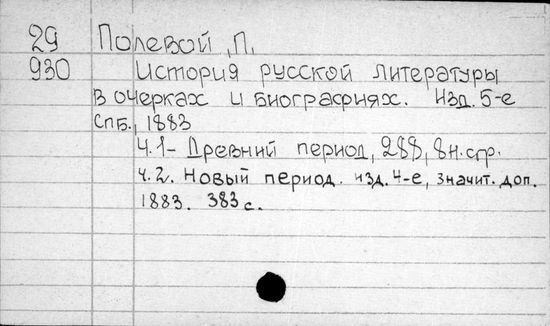 29 Полевой, П.
930 История русской литературы
в очерках и биографиях. Изд. 5-е
Спб., 1883
Ч.1- Древний период, 288, 8н.стр.
Ч.2. Новый период. изд. 4-е, значит. доп.
1883. 383 с.